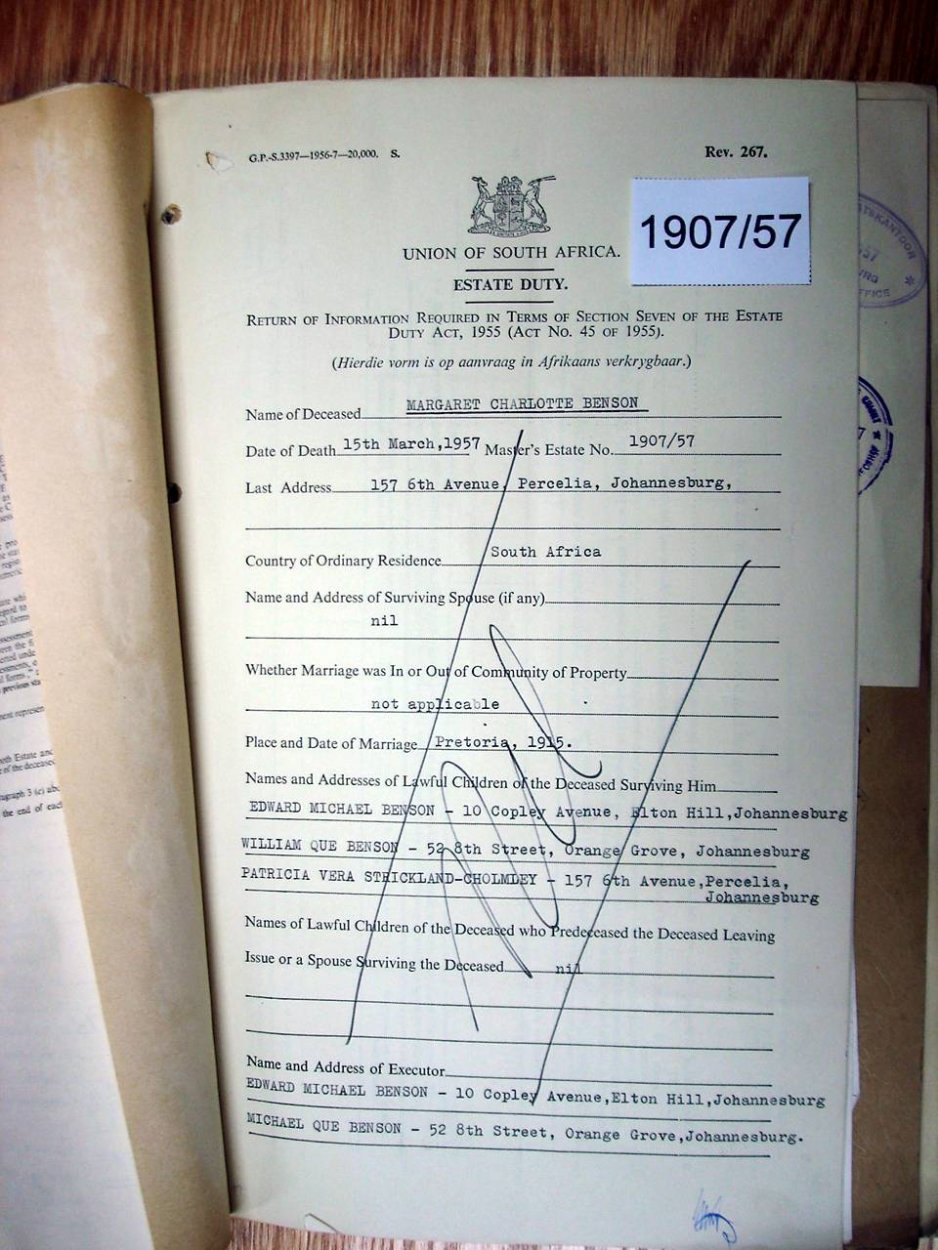 G.P.-S.3397—1956-7—20,000. S.
Rev. 267.
1907/57
UNION OF SOUTH AFRICA.
ESTATE DUTY.
RETURN OF INFORMATION REQUIRED IN TERMS OF SECTION SEVEN OF THE ESTATE
DUTY ACT, 1955 (ACT NO. 45 OF 1955).
(Hierdie vorm is op aanvraag in Afrikaans verkrygbaar.)
Name of Deceased MARGARET CHARLOTTE BENSON
Date of Death 15th March,1957 Master's Estate No. 1907/57
Last Address 157 6th Avenue, Percelia, Johannesburg,
Country of Ordinary Residence South Africa
Name and Address of Surviving Spouse (if any)
nil
Whether Marriage was In or Out of Community of Property
not applicable
Place and Date of Marriage Pretoria, 1915.
Names and Addresses of Lawful Children of the Deceased Surviving Him
EDWARD MICHAEL BENSON - 10 Copley Avenue, Elton Hill,Johannesburg
WILLIAM QUE BENSON - 52 8th Street, Orange Grove, Johannesburg
PATRICIA VERA STRICKLAND-CHOLMLEY - 157 6th Avenue,Percelia,
Johannesburg
Names of Lawful Children of the Deceased who Predeceased the Deceased Leaving
Issue or a Spouse Surviving the Deceased nil
Name and Address of Executor
EDWARD MICHAEL BENSON - 10 Copley Avenue,Elton Hill,Johannesburg
MICHAEL QUE BENSON - 52 8th Street, Orange Grove,Johannesburg.